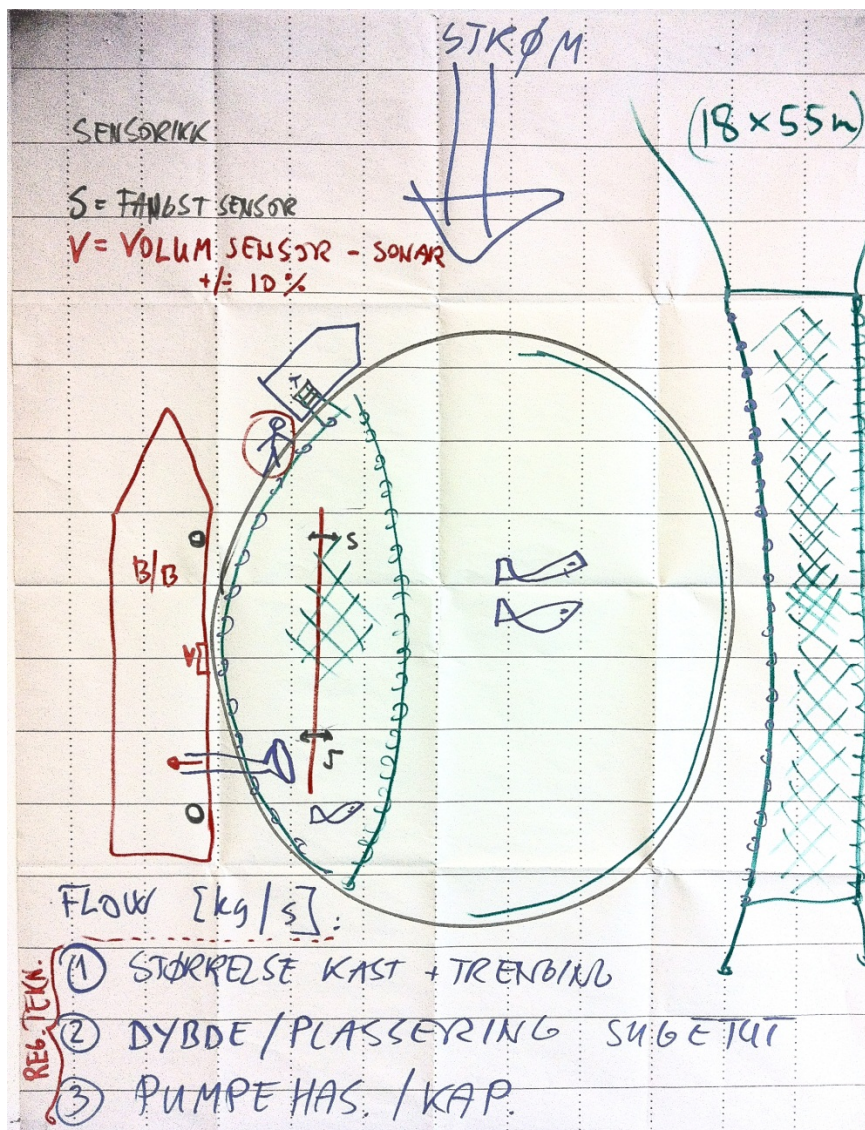 STRØM
(18 x 55m)
SENSORIKK
S = FANGST SENSOR
V = VOLUM SENSOR - SONAR
+/- 10%
S
B/B
V
S
FLOW [kg/s]:
REG. TEKN.
① STØRRELSE KAST + TRENGING
② DYBDE/PLASSERING SUGETUT
③ PUMPE HAS. / KAP.